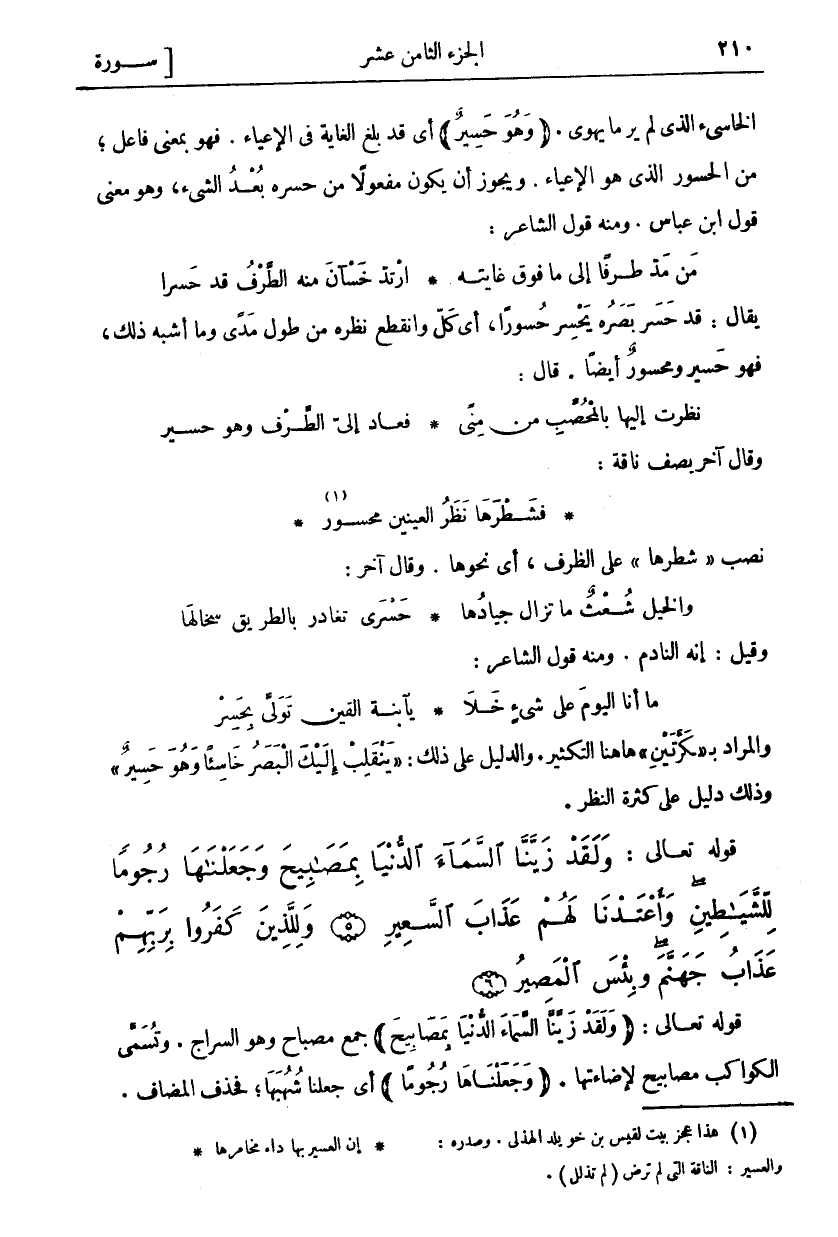 ٢١٠ الجزء الثامن عشر [ ســورة
الخاسىء الذى لم ير ما يهوى . ﴿ وَهُوَ حَسِيرٌ ﴾ أى قد بلغ الغاية فى الإعياء . فهو بمعنى فاعل ؛
من الحسور الذى هو الإعياء . ويجوز أن يكون مفعولًا من حسره بُعْـدُ الشىء، وهو معنى
قول ابن عباس . ومنه قول الشاعر :
مَن مَدّ طـرفًا إلى ما فوق غايتـه * ارْتدّ خَسْآنَ منه الطَّرْفُ قد حَسرا
يقال : قد حَسَر بَصَرُه يَحْسِر حُسورًا، أى كَلّ وانقطع نظره من طول مَدًى وما أشبه ذلك،
فهو حَسير ومحسورٌ أيضًا . قال :
نظرت إليها بالمُحَصَّبِ من مِنًى * فعـاد إلىّ الطَّـرْف وهو حسـير
وقال آخر يصف ناقة :
* فشَـطْرَهَا نَظَرُ العينين محسـور (١) *
نصب « شطرها » على الظرف ، أى نحوها . وقال آخر :
والخيل شُـعْثٌ ما تزال جيادُها * حَسْرَى تغادر بالطريق سخالهَا
وقيل : إنه النادم . ومنه قول الشاعر :
ما أنا اليومَ على شىءٍ خَـلَا * يآبنـة القين تَوَلَّى بِحَسِرْ
والمراد بـ«كَرَّتَيْنِ» هاهنا التكثير. والدليل على ذلك: «يَنْقَلِبْ إِلَيْكَ الْبَصَرُ خَاسِئًا وَهُوَ حَسِيرٌ»
وذلك دليل على كثرة النظر .
قوله تعـالى : وَلَقَدْ زَيَّنَّا ٱلسَّمَآءَ ٱلدُّنْيَا بِمَصَٰبِيحَ وَجَعَلْنَٰهَا رُجُومًا
لِّلشَّيَٰطِينِۖ وَأَعْتَدْنَا لَهُمْ عَذَابَ ٱلسَّعِيرِ ﴿٥﴾ وَلِلَّذِينَ كَفَرُوا بِرَبِّهِمْ
عَذَابُ جَهَنَّمَۖ وَبِئْسَ ٱلْمَصِيرُ ﴿٦﴾
قوله تعـالى : ﴿ وَلَقَدْ زَيَّنَّا السَّمَاءَ الدُّنْيَا بِمَصَابِيحَ ﴾ جمع مصباح وهو السراج . وتُسَمَّى
الكواكب مصابيح لإضاءتها . ﴿ وَجَعَلْنَاهَا رُجُومًا ﴾ أى جعلنا شُهُبَهَا؛ فحذف المضاف .
(١) هذا عجز بيت لقيس بن خويلد الهذلى . وصدره : * إن العسير بها داء مخامرها *
والعسير : الناقة التى لم ترض (لم تذلل) .